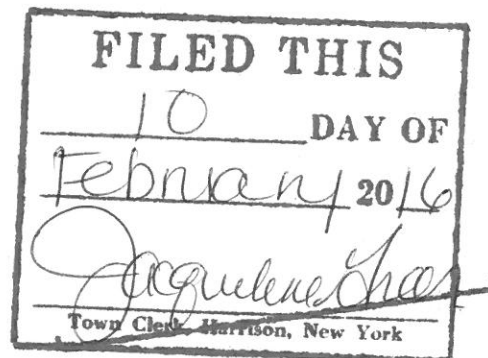 FILED THIS
10 DAY OF
February 2016
Jacqueline
Town Clerk, Harrison, New York